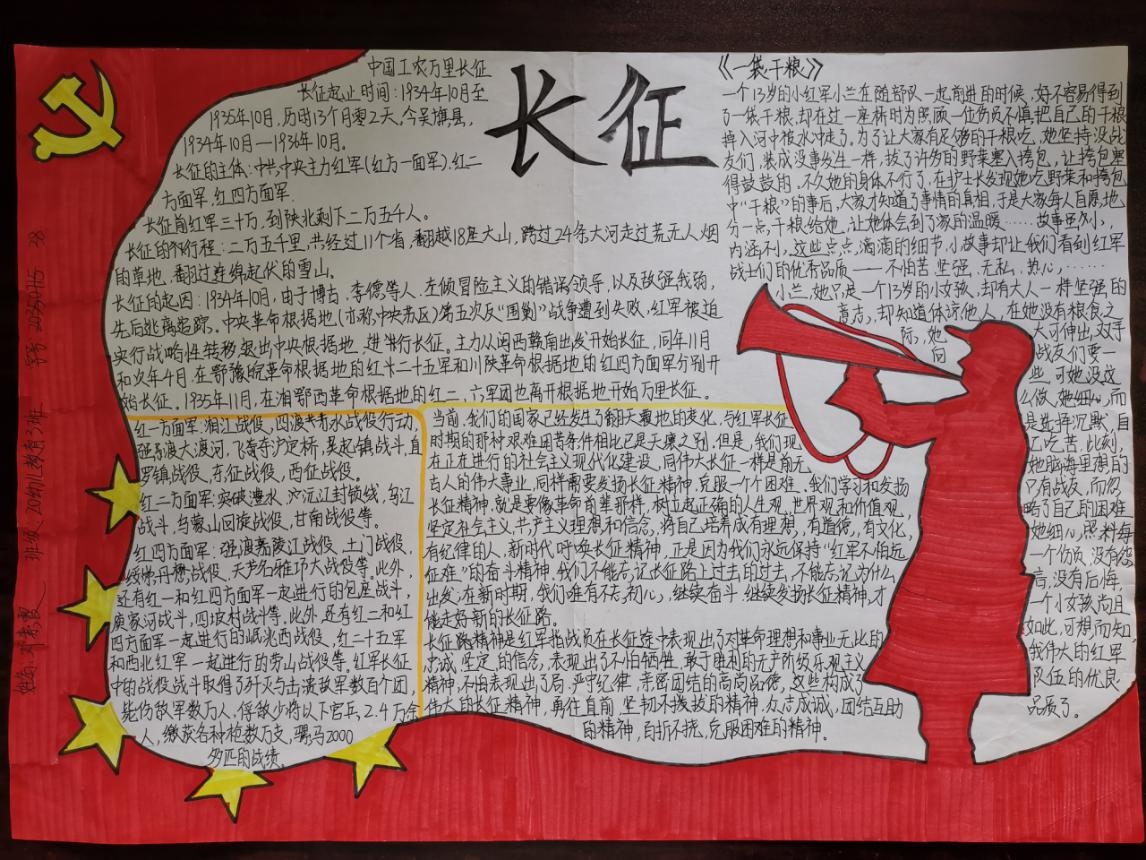 长征
中国工农万里长征
长征起止时间:1934年10月至
1935年10月,历时13个月零2天,今吴旗县,
1934年10月—1936年10月.
长征的主体:中共中央主力红军(红方一面军).红二
方面军,红四方面军.
长征前红军三十万,到陕北剩下二万五千人。
长征的行程:二万五千里,共经过11个省,翻越18座大山,跨过24条大河走过荒无人烟
的草地,翻过连绵起伏的雪山。
长征的起因:1934年10月,由于博古、李德等人、左倾冒险主义的错误领导,以及敌强我弱,
先后逃离追踪。中央革命根据地(亦称中央苏区)第五次反“围剿”战争遭到失败,红军被迫
实行战略性转移退出中央根据地,进行长征。主力从闽西赣南出发开始长征,同年11月
和次年4月,在鄂豫皖革命根据地的红二十五军和川陕革命根据地的红四方面军分别开
始长征。1935年11月,在湘鄂西革命根据地的红二、六军团也离开根据地开始万里长征。
红一方面军:湘江战役,四渡赤水战役行动,
强渡大渡河,飞夺泸定桥,吴起镇战斗,直
罗镇战役,东征战役,西征战役。
红二方面军:突破澧水,沅江封锁线,乌江
战斗,乌蒙山回旋战役,甘南战役等。
红四方面军:强渡嘉陵江战役,土门战役,
绥崇丹懋战役,天芦名雅邛大战役等。此外,
还有红一和红四方面军一起进行的包座战斗,
侯家河战斗,四坡村战斗等,此外,还有红二和红
四方面军一起进行的岷洮西战役,红二十五军
和西北红军一起进行的劳山战役等,红军长征
中的战役战斗取得了歼灭与击溃敌军数百个团,
毙伤敌军数万人,俘敌少将以下官兵,2.4万余
人,缴获各种枪数万支,骡马2000
多匹的战绩。
当前,我们的国家已经发生了翻天覆地的变化,与红军长征
时期的那种艰难困苦条件相比已是天壤之别,但是,我们现
在正在进行的社会主义现代化建设,同伟大长征一样是前无
古人的伟大事业,同样需要发扬长征精神,克服一个个困难、我们学习和发扬
长征精神,就是要像革命前辈那样,树立起正确的人生观,世界观和价值观,
坚定社会主义,共产主义理想和信念,将自己培养成有理想,有道德,有文化,
有纪律的人,新时代呼唤长征精神,正是因为我们永远保持“红军不怕远
征难”的奋斗精神.我们不能忘记长征路上过去的过去,不能忘记为什么
出发;在新时期,我们唯有不忘初心,继续奋斗,继续发扬长征精神,才
能走好新的长征路。
长征路精神是红军指战员在长征途中表现出了对革命理想和事业无比的
忠诚,坚定的信念,表现出了不怕牺牲,敢于胜利的无产阶级乐观主义
精神,不但表现出了局,严守纪律,亲密团结的高尚品德,这些构成了
伟大的长征精神,勇往直前,坚韧不拔的精神,众志成诚,团结互助
的精神,百折不挠,克服困难的精神。
《一袋干粮》
一个13岁的小红军小兰在随部队一起前进的时候,好不容易得到
了一袋干粮,却在过一座桥时为照顾一位伤员不慎把自己的干粮
掉入河中被水冲走了。为了让大家有足够的干粮吃,她坚持没战
友们,装成没事发生一样,拔了许多的野菜塞入挎包,让挎包塞
得鼓鼓的,不久她的身体不行了,在护士长发现她吃野菜和挎包
中“干粮”的事后,大家才知道了事情的真相,于是大家每人自愿地
分一点干粮给她,让她体会到了家的温暖……故事虽小,
内涵不小,这些点点滴滴的细节,小故事却让我们看到红军
战士们的优秀品质——不怕苦、坚强、无私、热心,……
小兰,她只是一个13岁的小女孩,却有大人一样坚强的
意志,却知道体谅他人,在她没有粮食之
际,她大可伸出双手
向战友们要一
些,可她没这
么做,她细心,而
是选择沉默,自
己吃苦,此刻,
她脑海里想的
只有战友,而忽
略了自己的困难
她细心,照料每
一个伤员,没有怨
言,没有后悔,
一个小女孩尚且
如此,可想而知
我伟大的红军
队伍的优良
品质了。
姓名:邓素霞 班级:20幼儿教育3班 学号 20350745 38